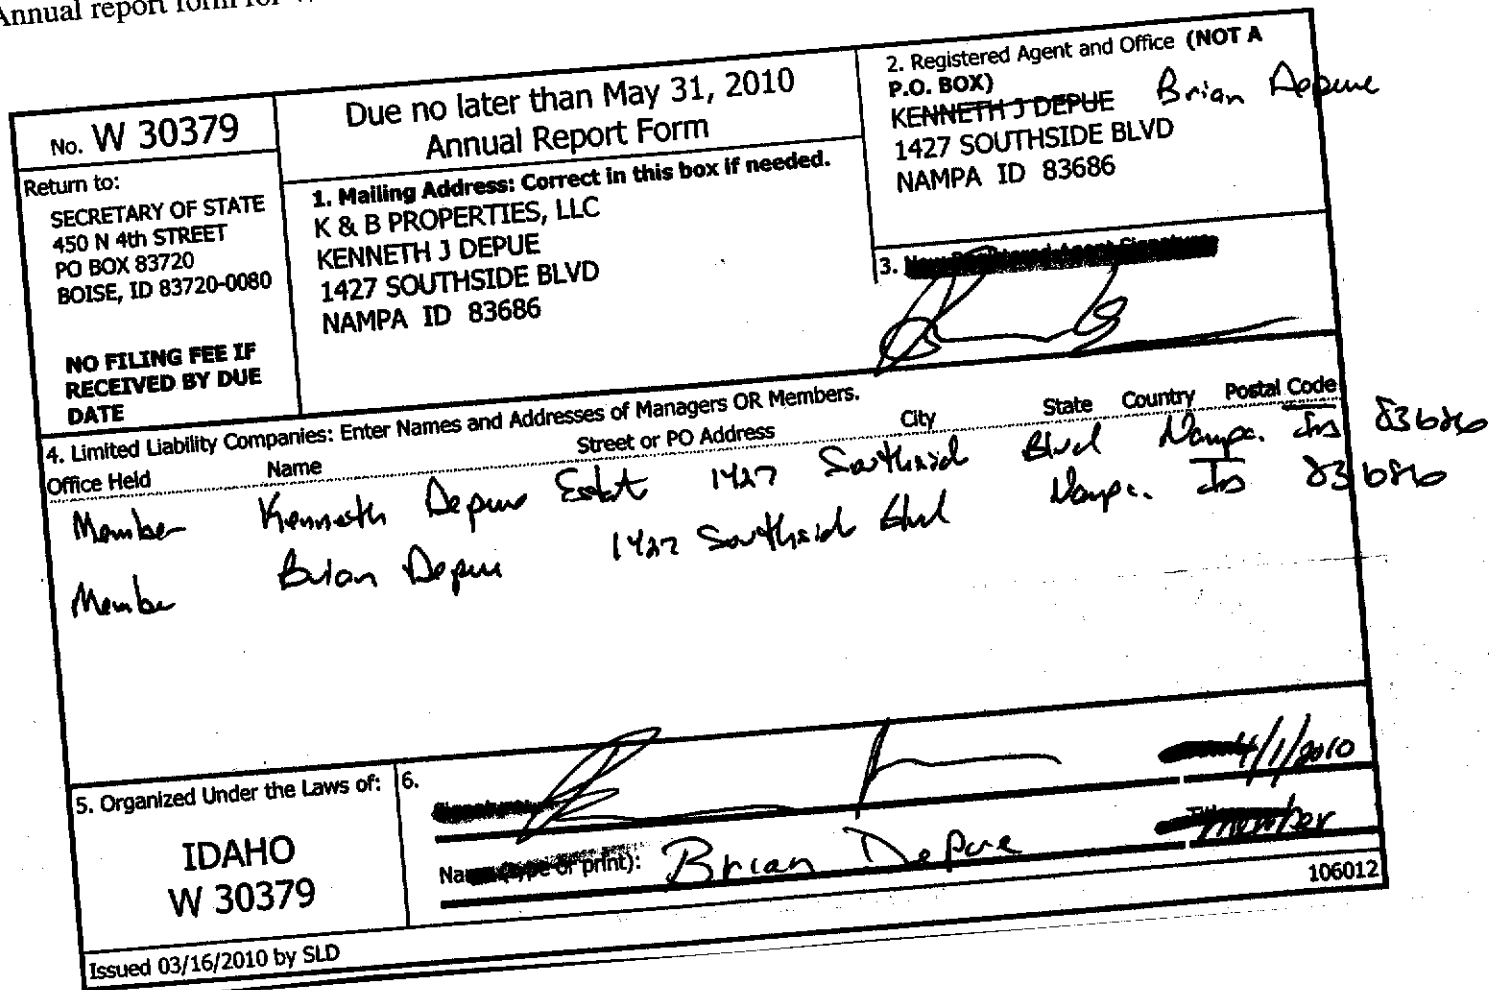 Annual report form for W
No. W 30379
Return to:
SECRETARY OF STATE
450 N 4th STREET
PO BOX 83720
BOISE, ID 83720-0080
NO FILING FEE IF
RECEIVED BY DUE
DATE
Due no later than May 31, 2010
Annual Report Form
1. Mailing Address: Correct in this box if needed.
K & B PROPERTIES, LLC
KENNETH J DEPUE
1427 SOUTHSIDE BLVD
NAMPA ID 83686
2. Registered Agent and Office (NOT A
P.O. BOX)
KENNETH J DEPUE Brian Depue
1427 SOUTHSIDE BLVD
NAMPA ID 83686
3. New Registered Agent Signature
4. Limited Liability Companies: Enter Names and Addresses of Managers OR Members.
Office Held Name Street or PO Address City State Country Postal Code
Member Kenneth Depue Estat 1427 Southsid Blvd Nampa. 83686
Member Brian Depue 1427 Southsid Blvd Nampa. 83686
5. Organized Under the Laws of:
IDAHO
W 30379
6.
Signature: 4/1/2010
Name (type or print): Brian DePue Title: member
106012
Issued 03/16/2010 by SLD